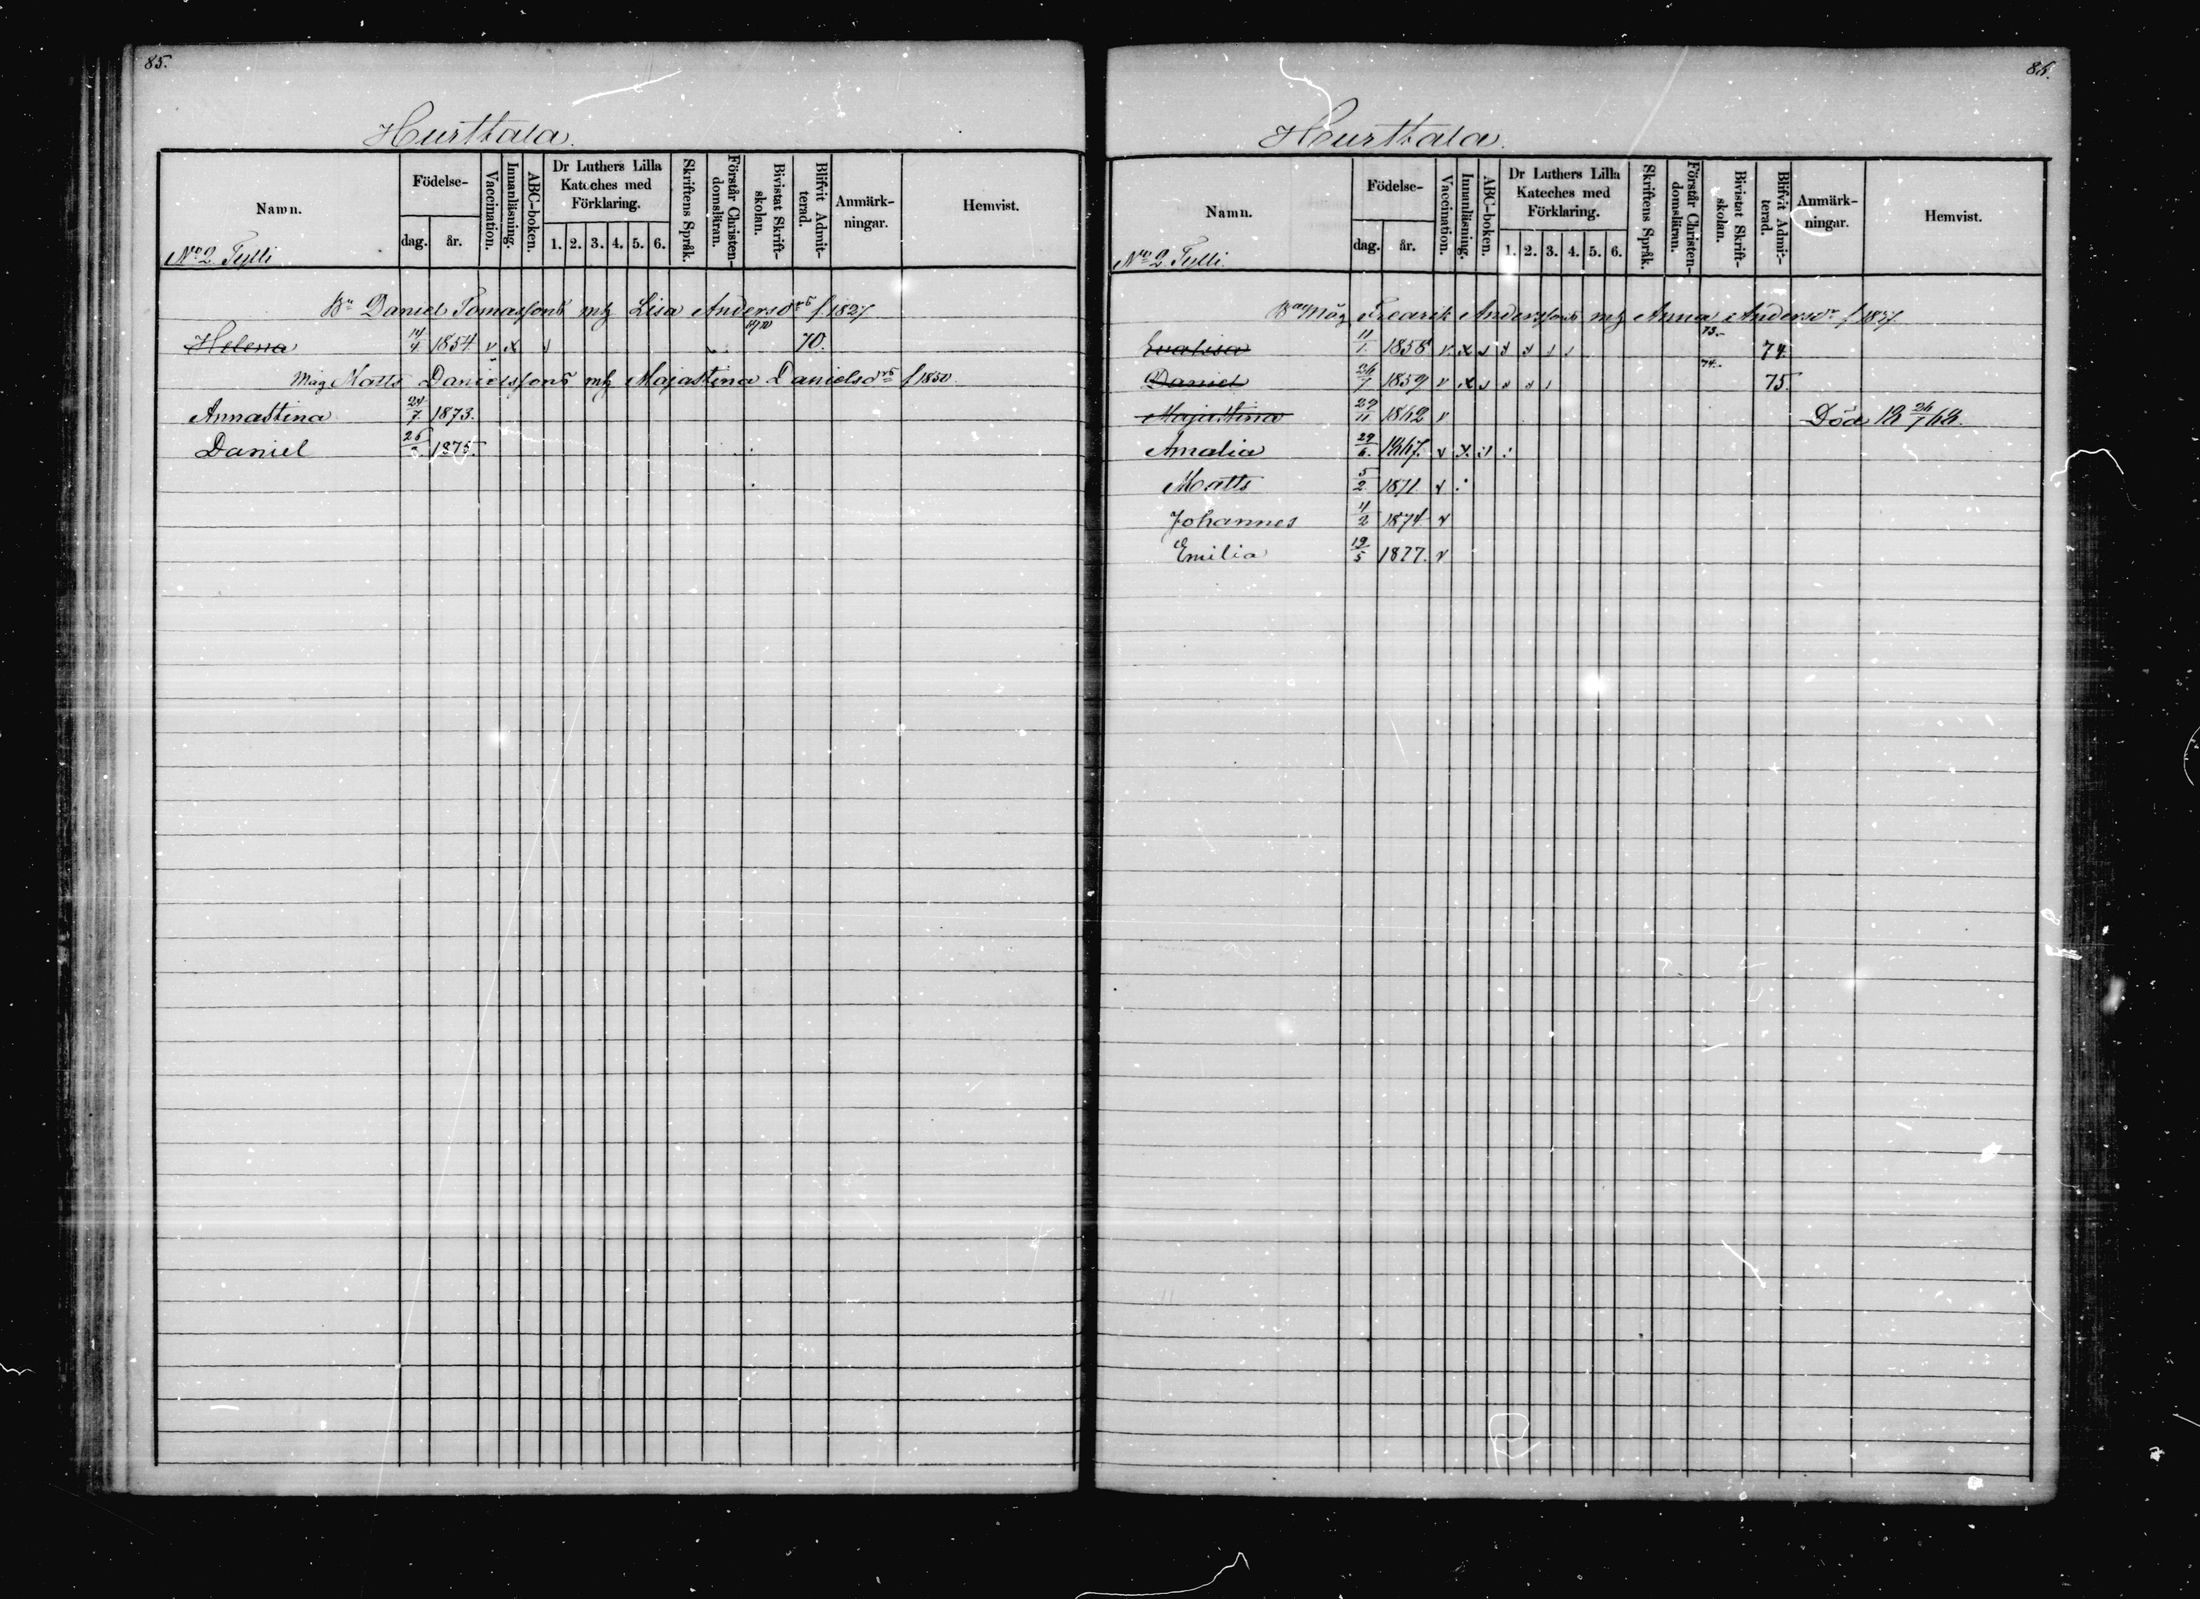 85.
Hurttala.
Namn. Födelse- dag. år. Vaccination. Innanläsning. ABC-boken. Dr Luthers Lilla Kateches med Förklaring. 1. 2. 3. 4. 5. 6. Skriftens Språk. Förstår Christendomsläran. Bivistat Skriftskolan. Blifvit Admitterad. Anmärkningar. Hemvist.
No 2 Tylli
Bn Daniel Tomassons m h Lisa Andersdrs f. 1827
Helena 14/4 1854. v x v 70.
Måg Matts Danielssons m h Majastina Danielsdrs f 1850.
Annastina 24/7. 1873.
Daniel 1875.
86.
Hurttala.
Namn. Födelse- dag. år. Vaccination. Innanläsning. ABC-boken. Dr Luthers Lilla Kateches med Förklaring. 1. 2. 3. 4. 5. 6. Skriftens Språk. Förstår Christendomsläran. Bivistat Skriftskolan. Blifvit Admitterad. Anmärkningar. Hemvist.
No 2 Tylli.
Måg Fredrik Anderssons m h Anna Andersdr f 1837
Evalisa 11/1. 1858 v x 73. 74.
Daniel 26/7 1859 v x 74. 75.
Majastina 29/11 1862 v Död
Amalia 29/6. 1867. v x
Matts 5/2. 1871. v
Johannes 11/2 1874. v
Emilia 19/5 1877. v